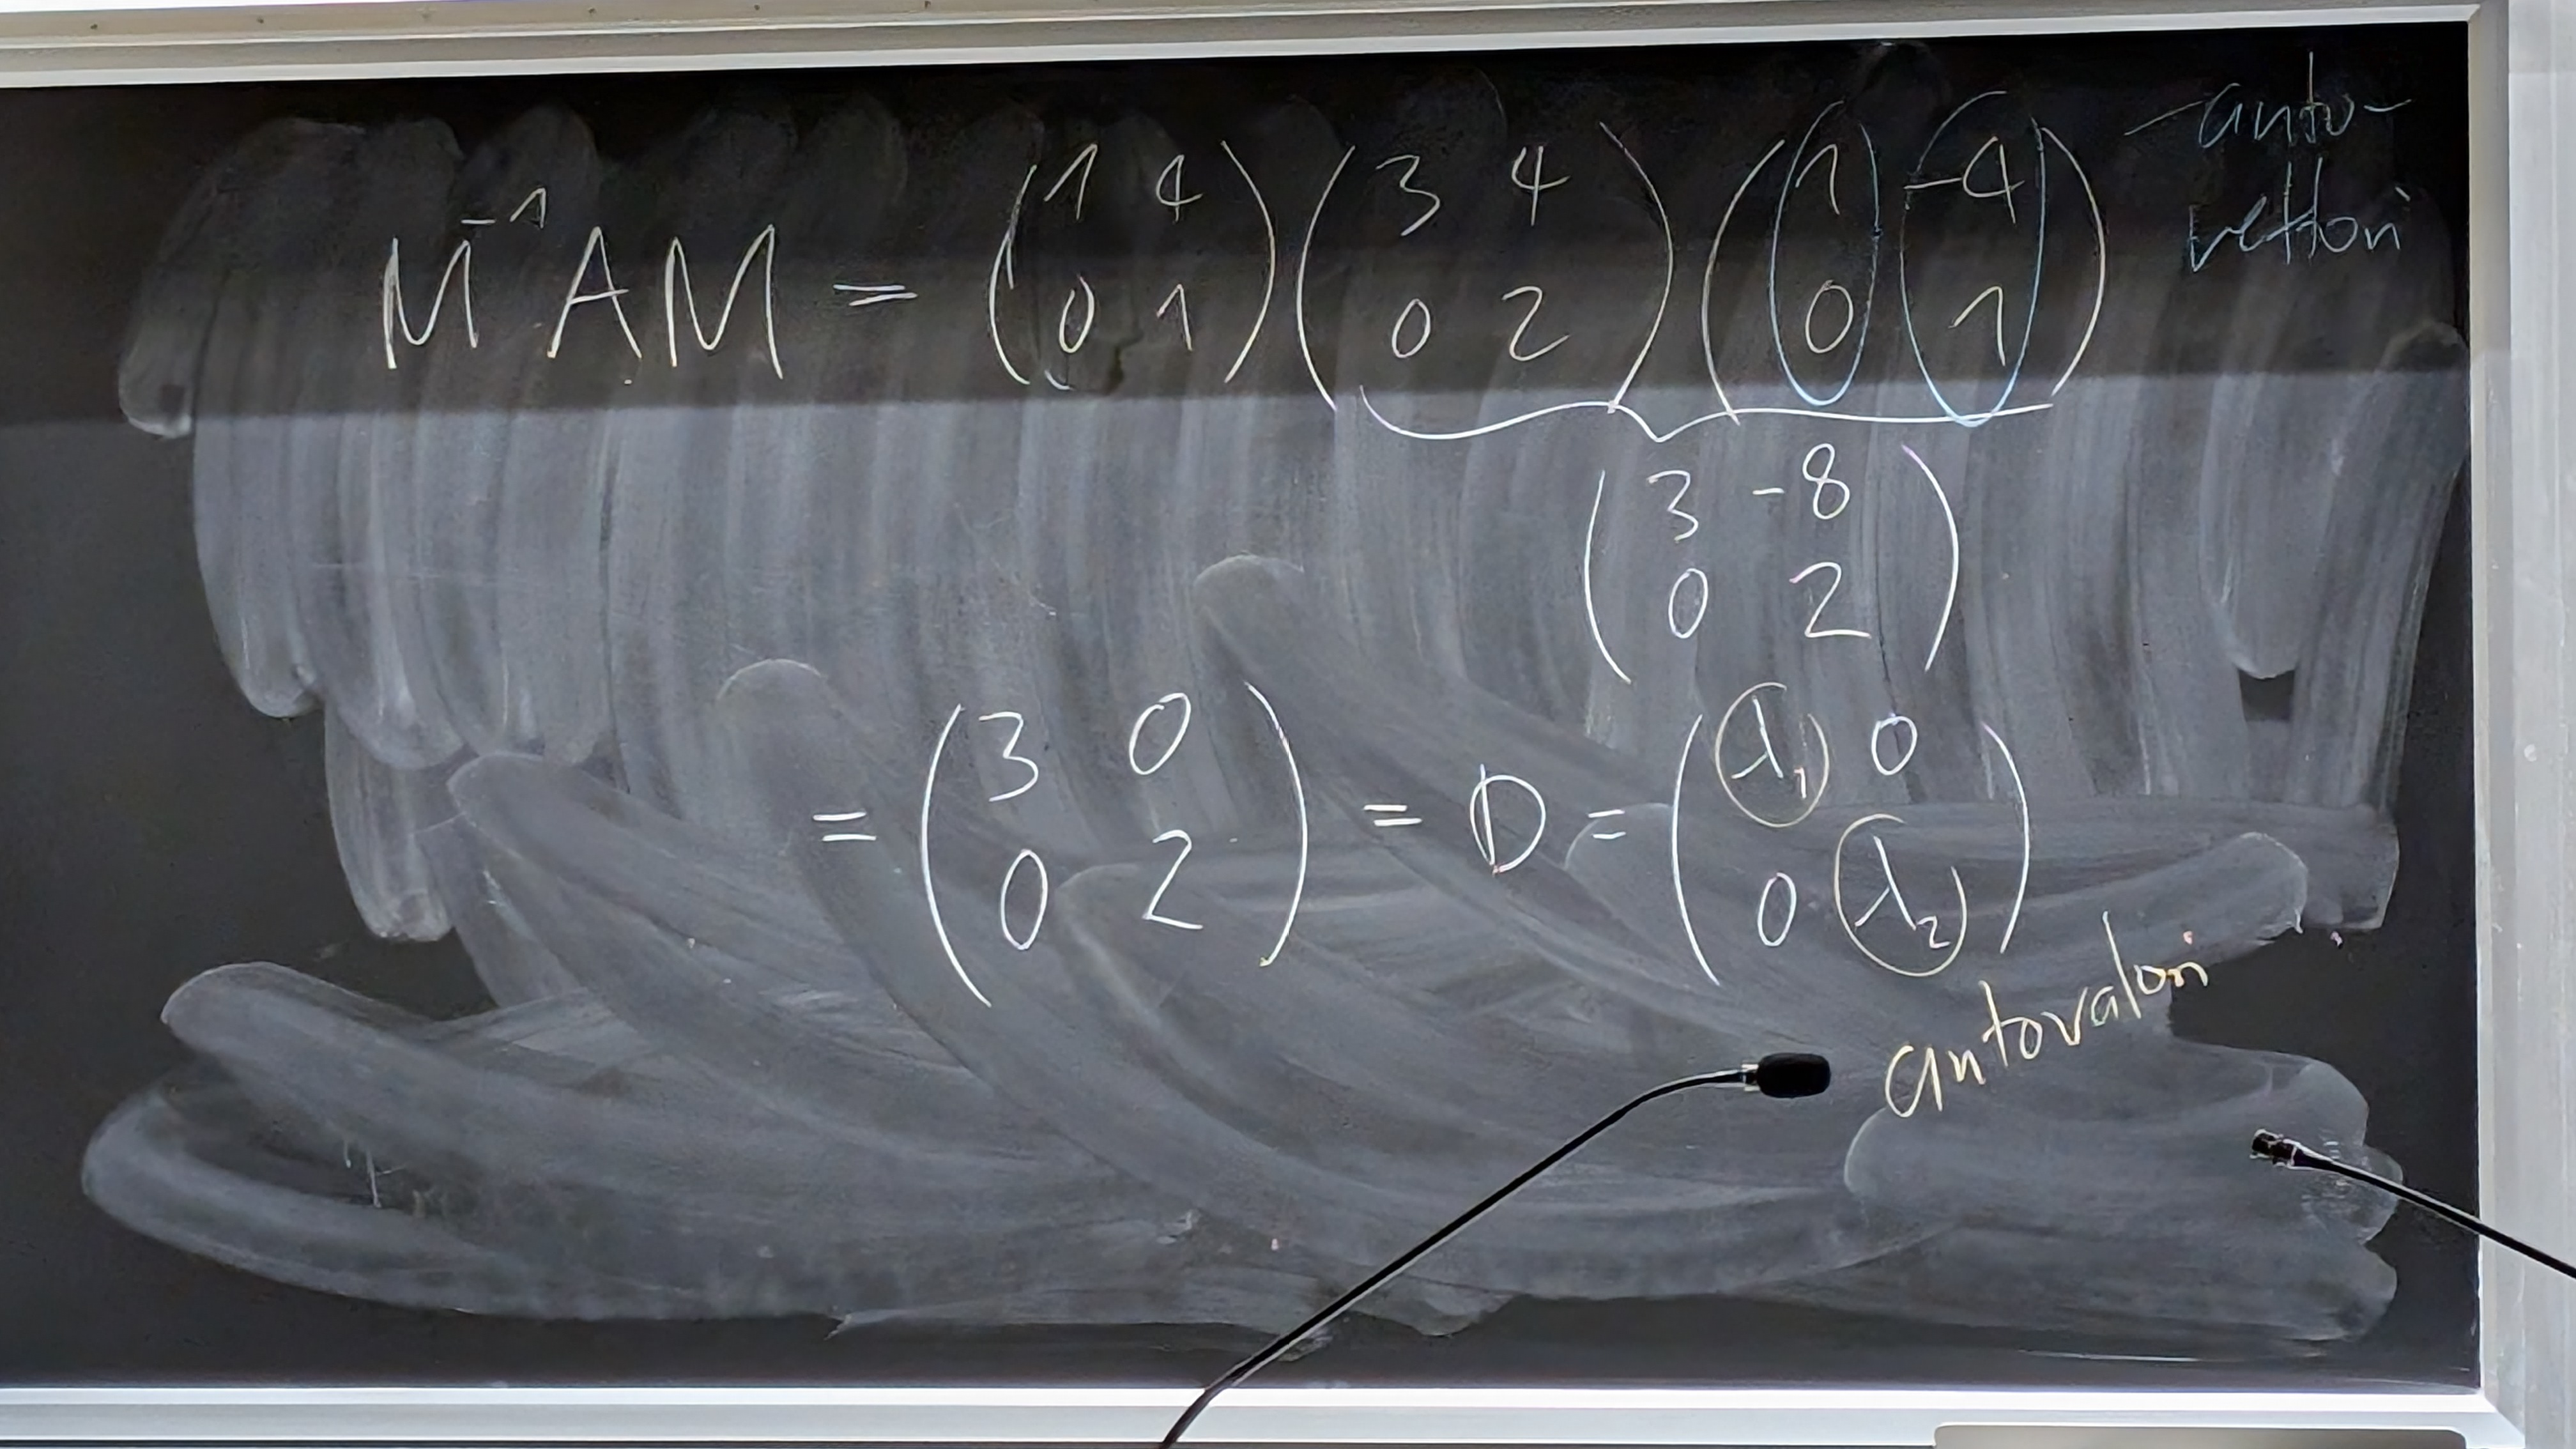 M⁻¹AM = (1 4; 0 1)(3 4; 0 2)(1 -4; 0 1) -auto-
vettori
(3 -8; 0 2)
= (3 0; 0 2) = D = (λ₁ 0; 0 λ₂)
autovalori